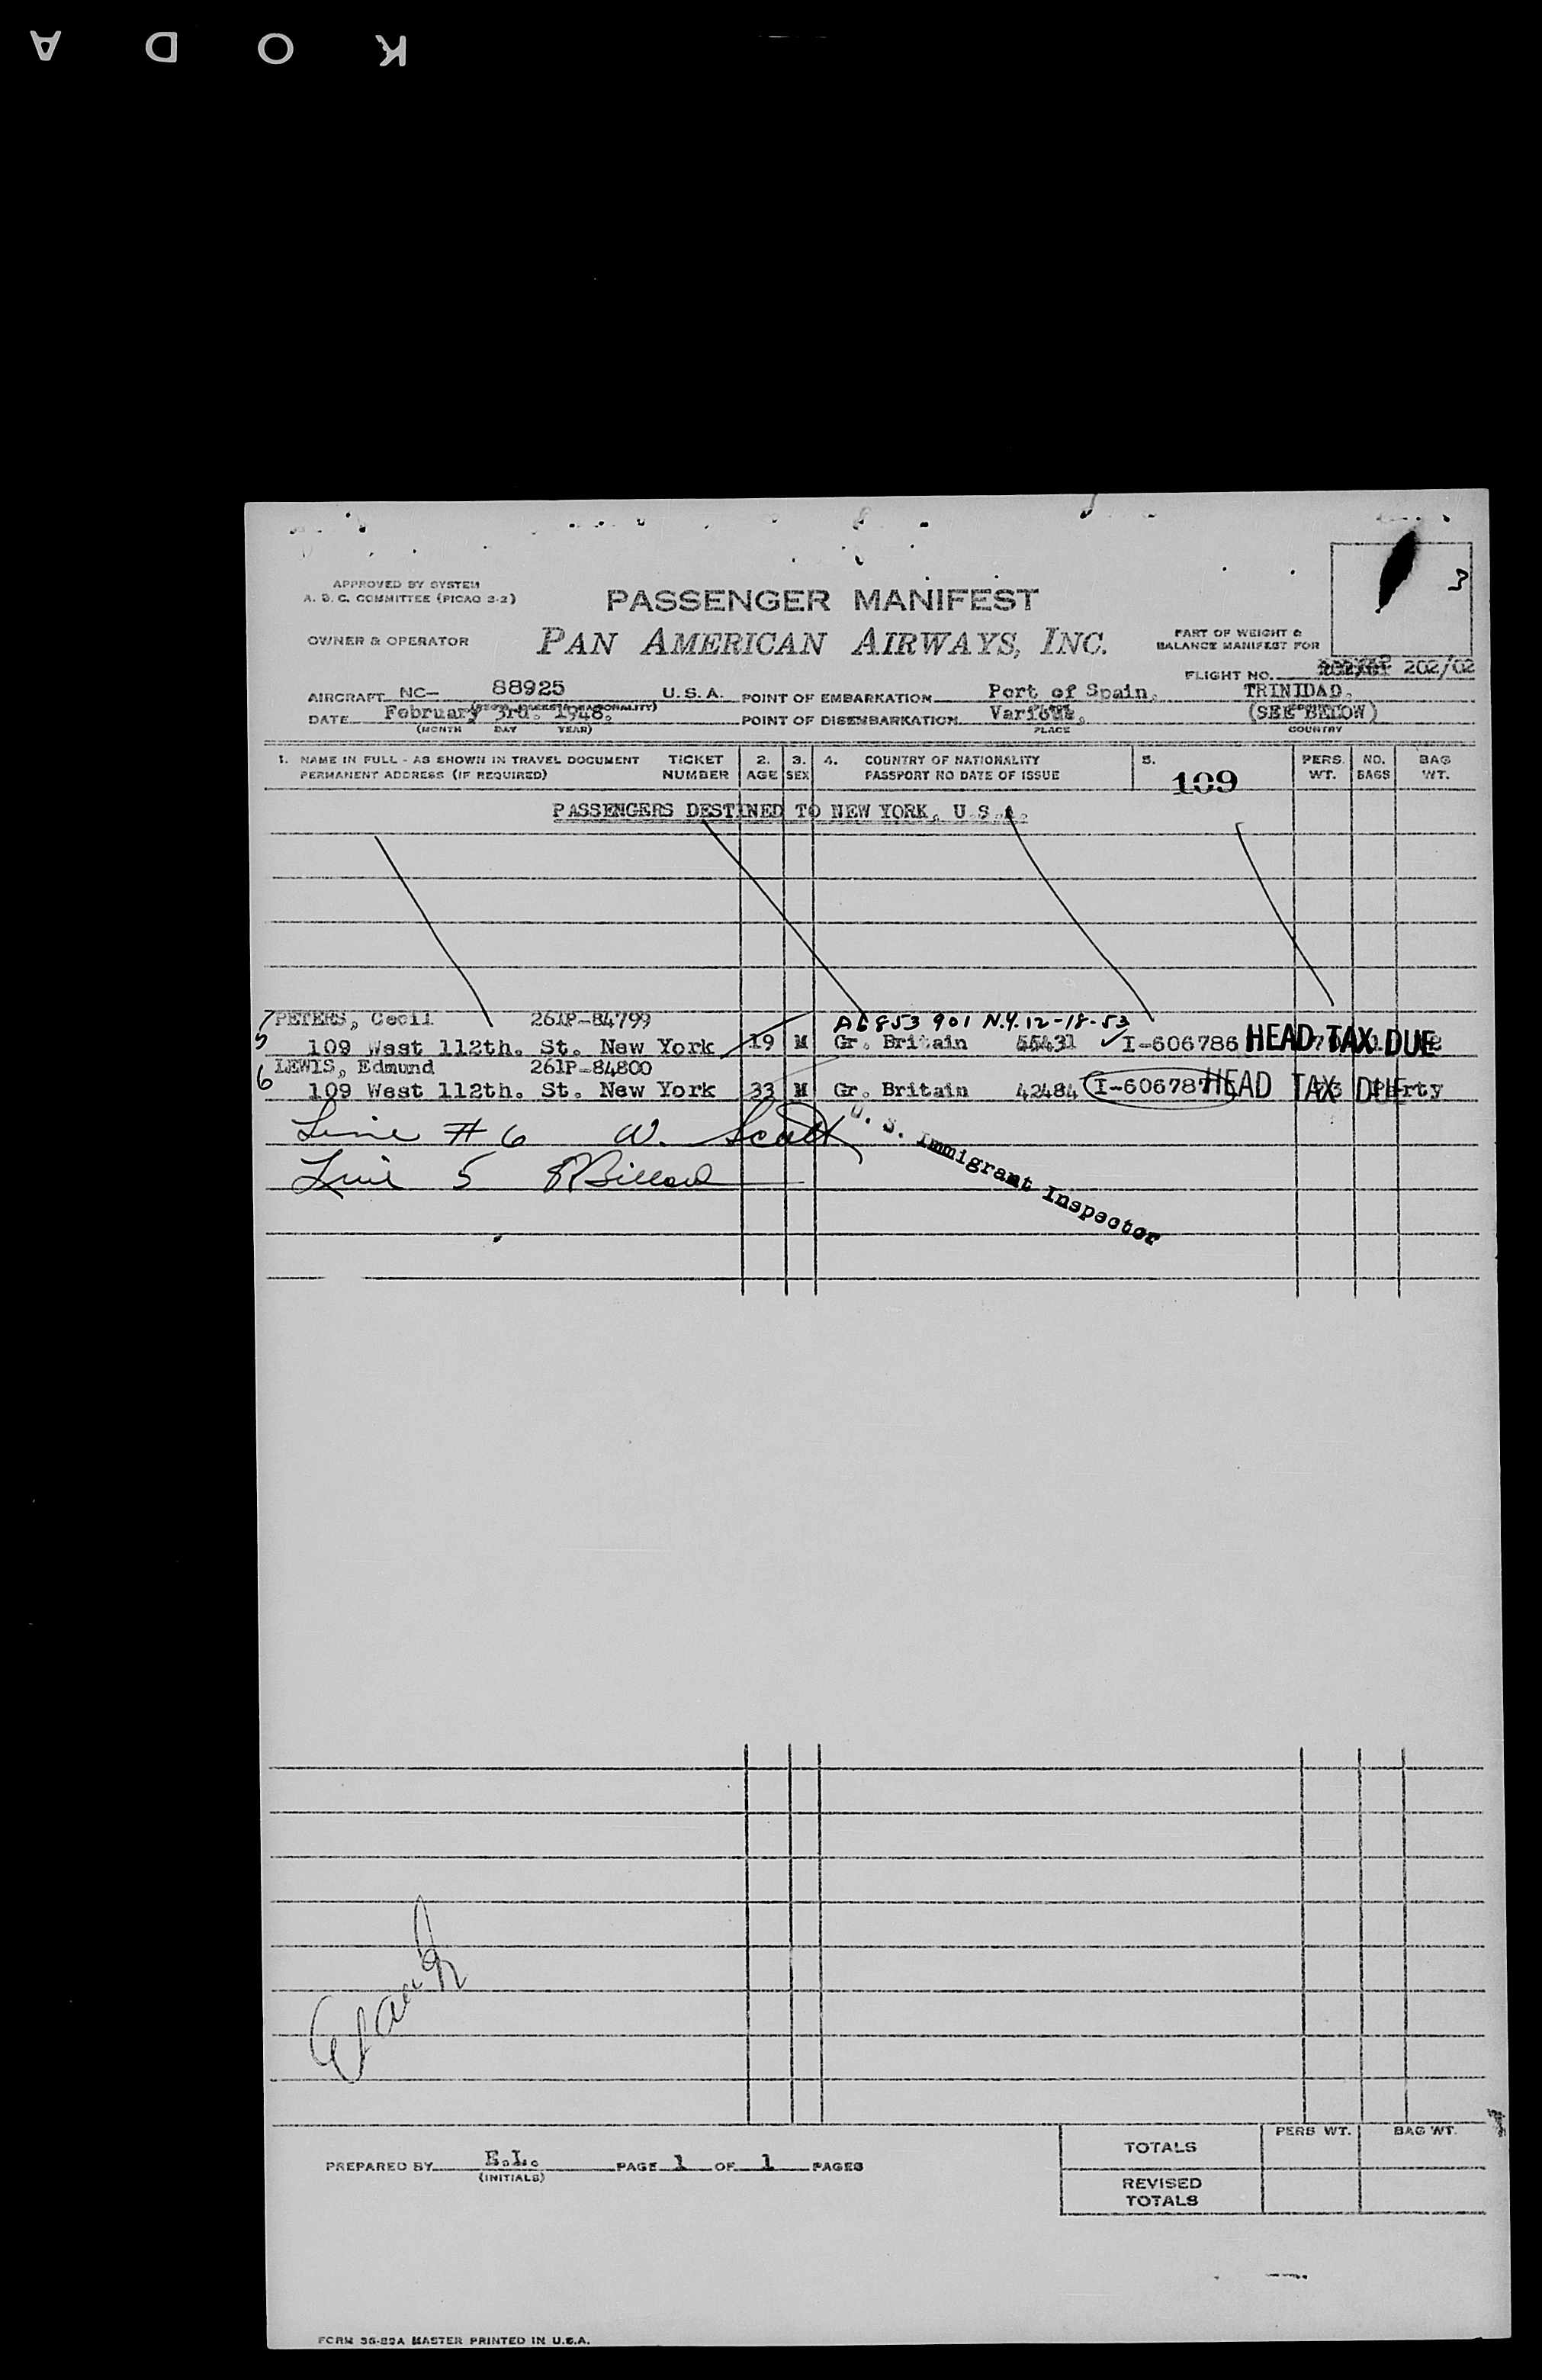 K O D A
3
APPROVED BY SYSTEM
A. B. C. COMMITTEE (PICAO 2-2)
PASSENGER MANIFEST
OWNER & OPERATOR PAN AMERICAN AIRWAYS, INC.
PART OF WEIGHT &
BALANCE MANIFEST FOR
FLIGHT NO. 202/02
AIRCRAFT NC- 88925 U.S.A. POINT OF EMBARKATION Port of Spain, TRINIDAD.
DATE February 3rd. 1948. POINT OF DISEMBARKATION Various, (SEE BELOW)
(MONTH DAY YEAR) PLACE COUNTRY
1. NAME IN FULL - AS SHOWN IN TRAVEL DOCUMENT TICKET 2. 3. 4. COUNTRY OF NATIONALITY 5. PERS. NO. BAG
PERMANENT ADDRESS (IF REQUIRED) NUMBER AGE SEX PASSPORT NO DATE OF ISSUE 109 WT. BAGS WT.
PASSENGERS DESTINED TO NEW YORK, U.S.A.
PETERS, Cecil 261P-84799 A6 853 901 N.Y. 12-18-53
5 109 West 112th. St. New York 19 M Gr. Britain I-606786 HEAD TAX DUE
LEWIS, Edmund 261P-84800
6 109 West 112th. St. New York 33 M Gr. Britain 42484 I-606787 HEAD TAX DUE
Line # 6 W. Scott
Line 5
U. S. Immigrant Inspector
PREPARED BY E.L. PAGE 1 OF 1 PAGES
(INITIALS)
PERS WT. BAG WT.
TOTALS
REVISED
TOTALS
FORM 36-29A MASTER PRINTED IN U.S.A.